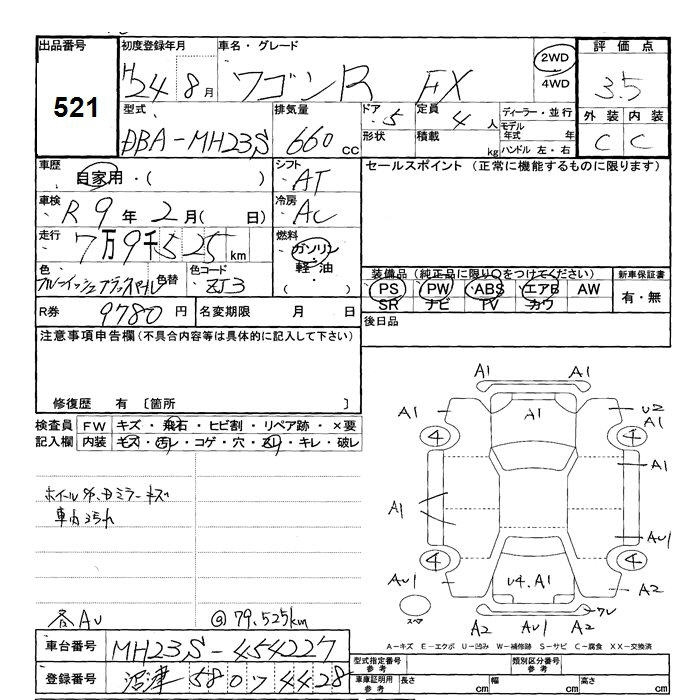 出品番号 初度登録年月 車名・グレード 2WD 評価点
521 H24 8月 ワゴンR FX 4WD 3.5
型式 排気量 ドア 5 定員 4人 ディーラー・並行 外装 内装
DBA-MH23S 660cc 形状 積載 kg モデル年式 年 C C
ハンドル 左・右
車歴 自家用・( ) シフト AT セールスポイント (正常に機能するものに限ります)
車検 R9年2月( 日) 冷房 AC
走行 7万9千525km 燃料 ガソリン・軽油・( )
色 色替 色コード ZJ3 装備品(純正品に限り○をつけてください) 新車保証書
PS PW ABS エアB AW 有・無
SR ナビ TV カワ
R券 9780円 名変期限 月 日 後日品
注意事項申告欄(不具合内容等は具体的に記入して下さい)
修復歴 有 〔箇所 〕
検査員記入欄 FW キズ・飛石・ヒビ割・リペア跡・×要
内装 キズ・汚レ・コゲ・穴・スレ・キレ・破レ
A1 A1
A1 A1 U2 A1
4 4
A1
A1
AU1
4 4
AU1 U4.A1 A2
スペア
A2 AU1 A2
車内汚れ
各AU @ 79,525km
A-キズ E-エクボ U-凹み W-補修跡 S-サビ C-腐食 XX-交換済
車台番号 MH23S-454227
型式指定番号 参考 類別区分番号 参考
登録番号 沼津 580 ア 4428
車庫証明用 参考 長さ cm 幅 cm 高さ cm